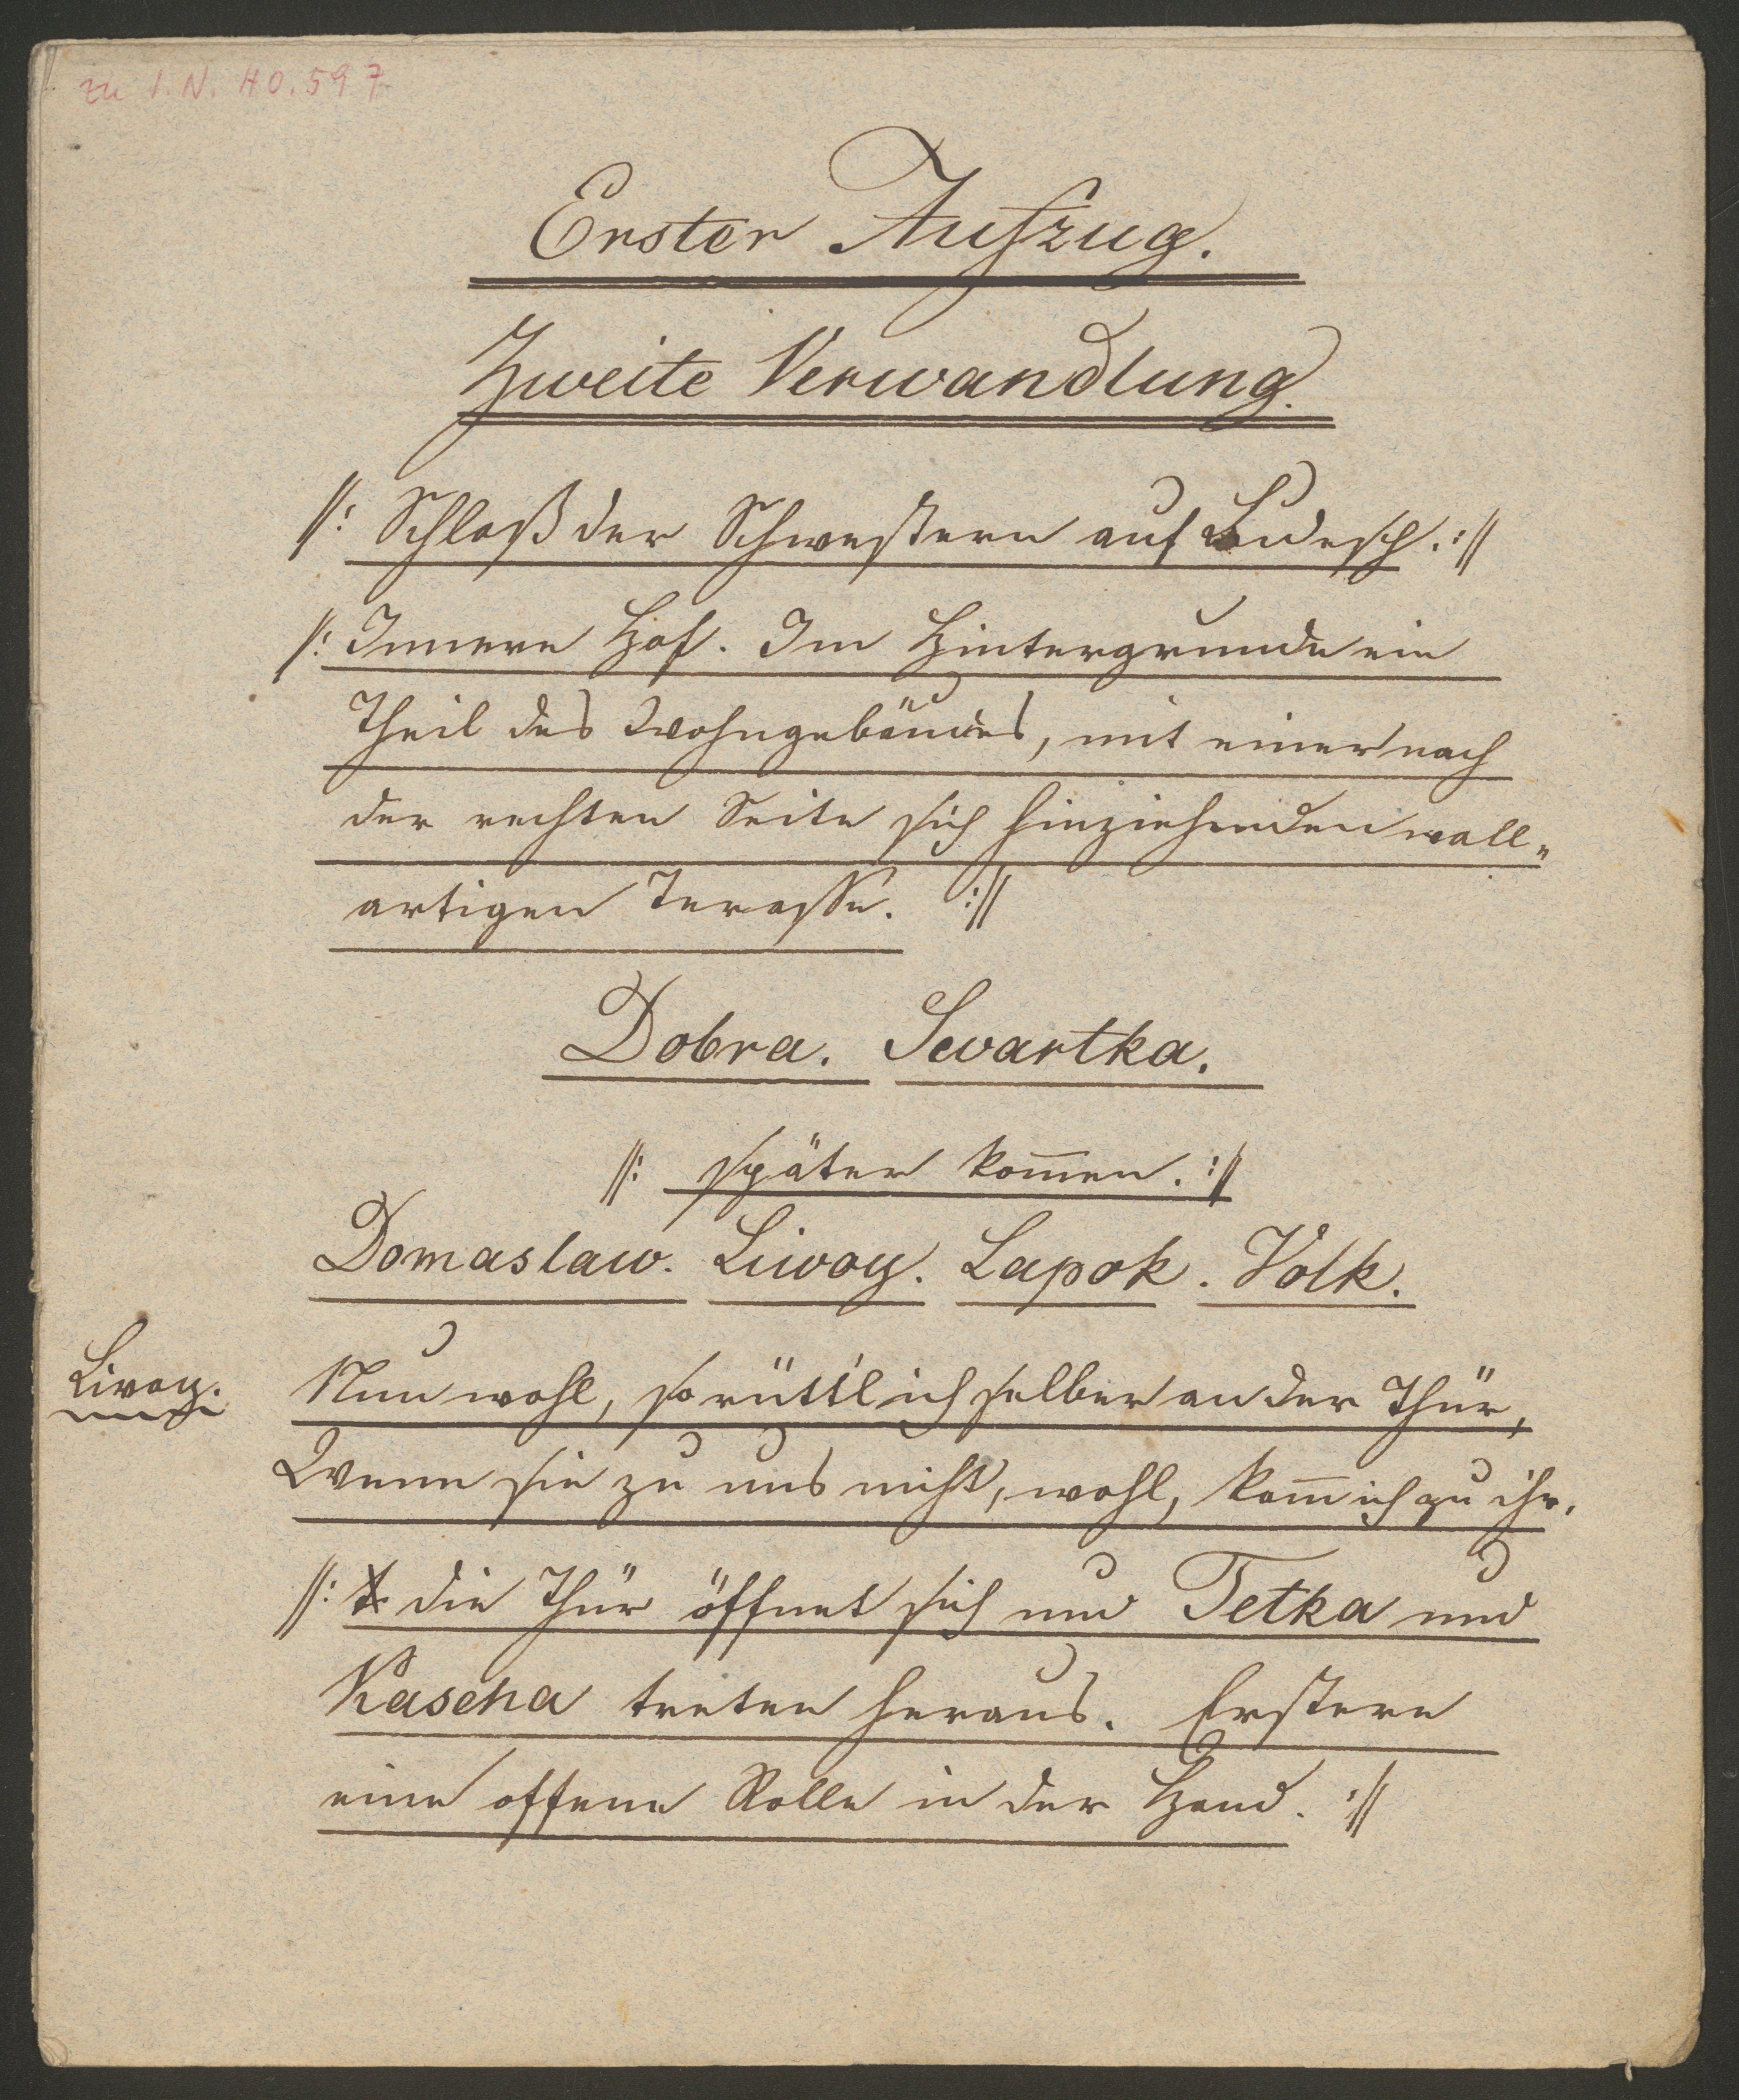 zu I. N. 40.597
Erster Aufzug.
Zweite Verwandlung.
//: Schloß der Schwestern auf Budesch. ://
/: Innerer Hof. Im Hintergrunde ein
Theil des Wohngebäudes, mit einer nach
der rechten Seite sich hinziehenden wall„
artigen Terasse. ://
Dobra. Swartka.
//: später kom̅en. ://
Domaslaw. Liwoy. Lapok. Volk.
Livoy. Nun wohl, so rüttl' ich selber an der Thür,
Wenn sie zu uns nicht, wohl, kom̅ ich zu ihr.
//: die Thür öffnet sich und Tetka und
Kascha treten heraus. Erstere
eine offene Rolle in der Hand. ://